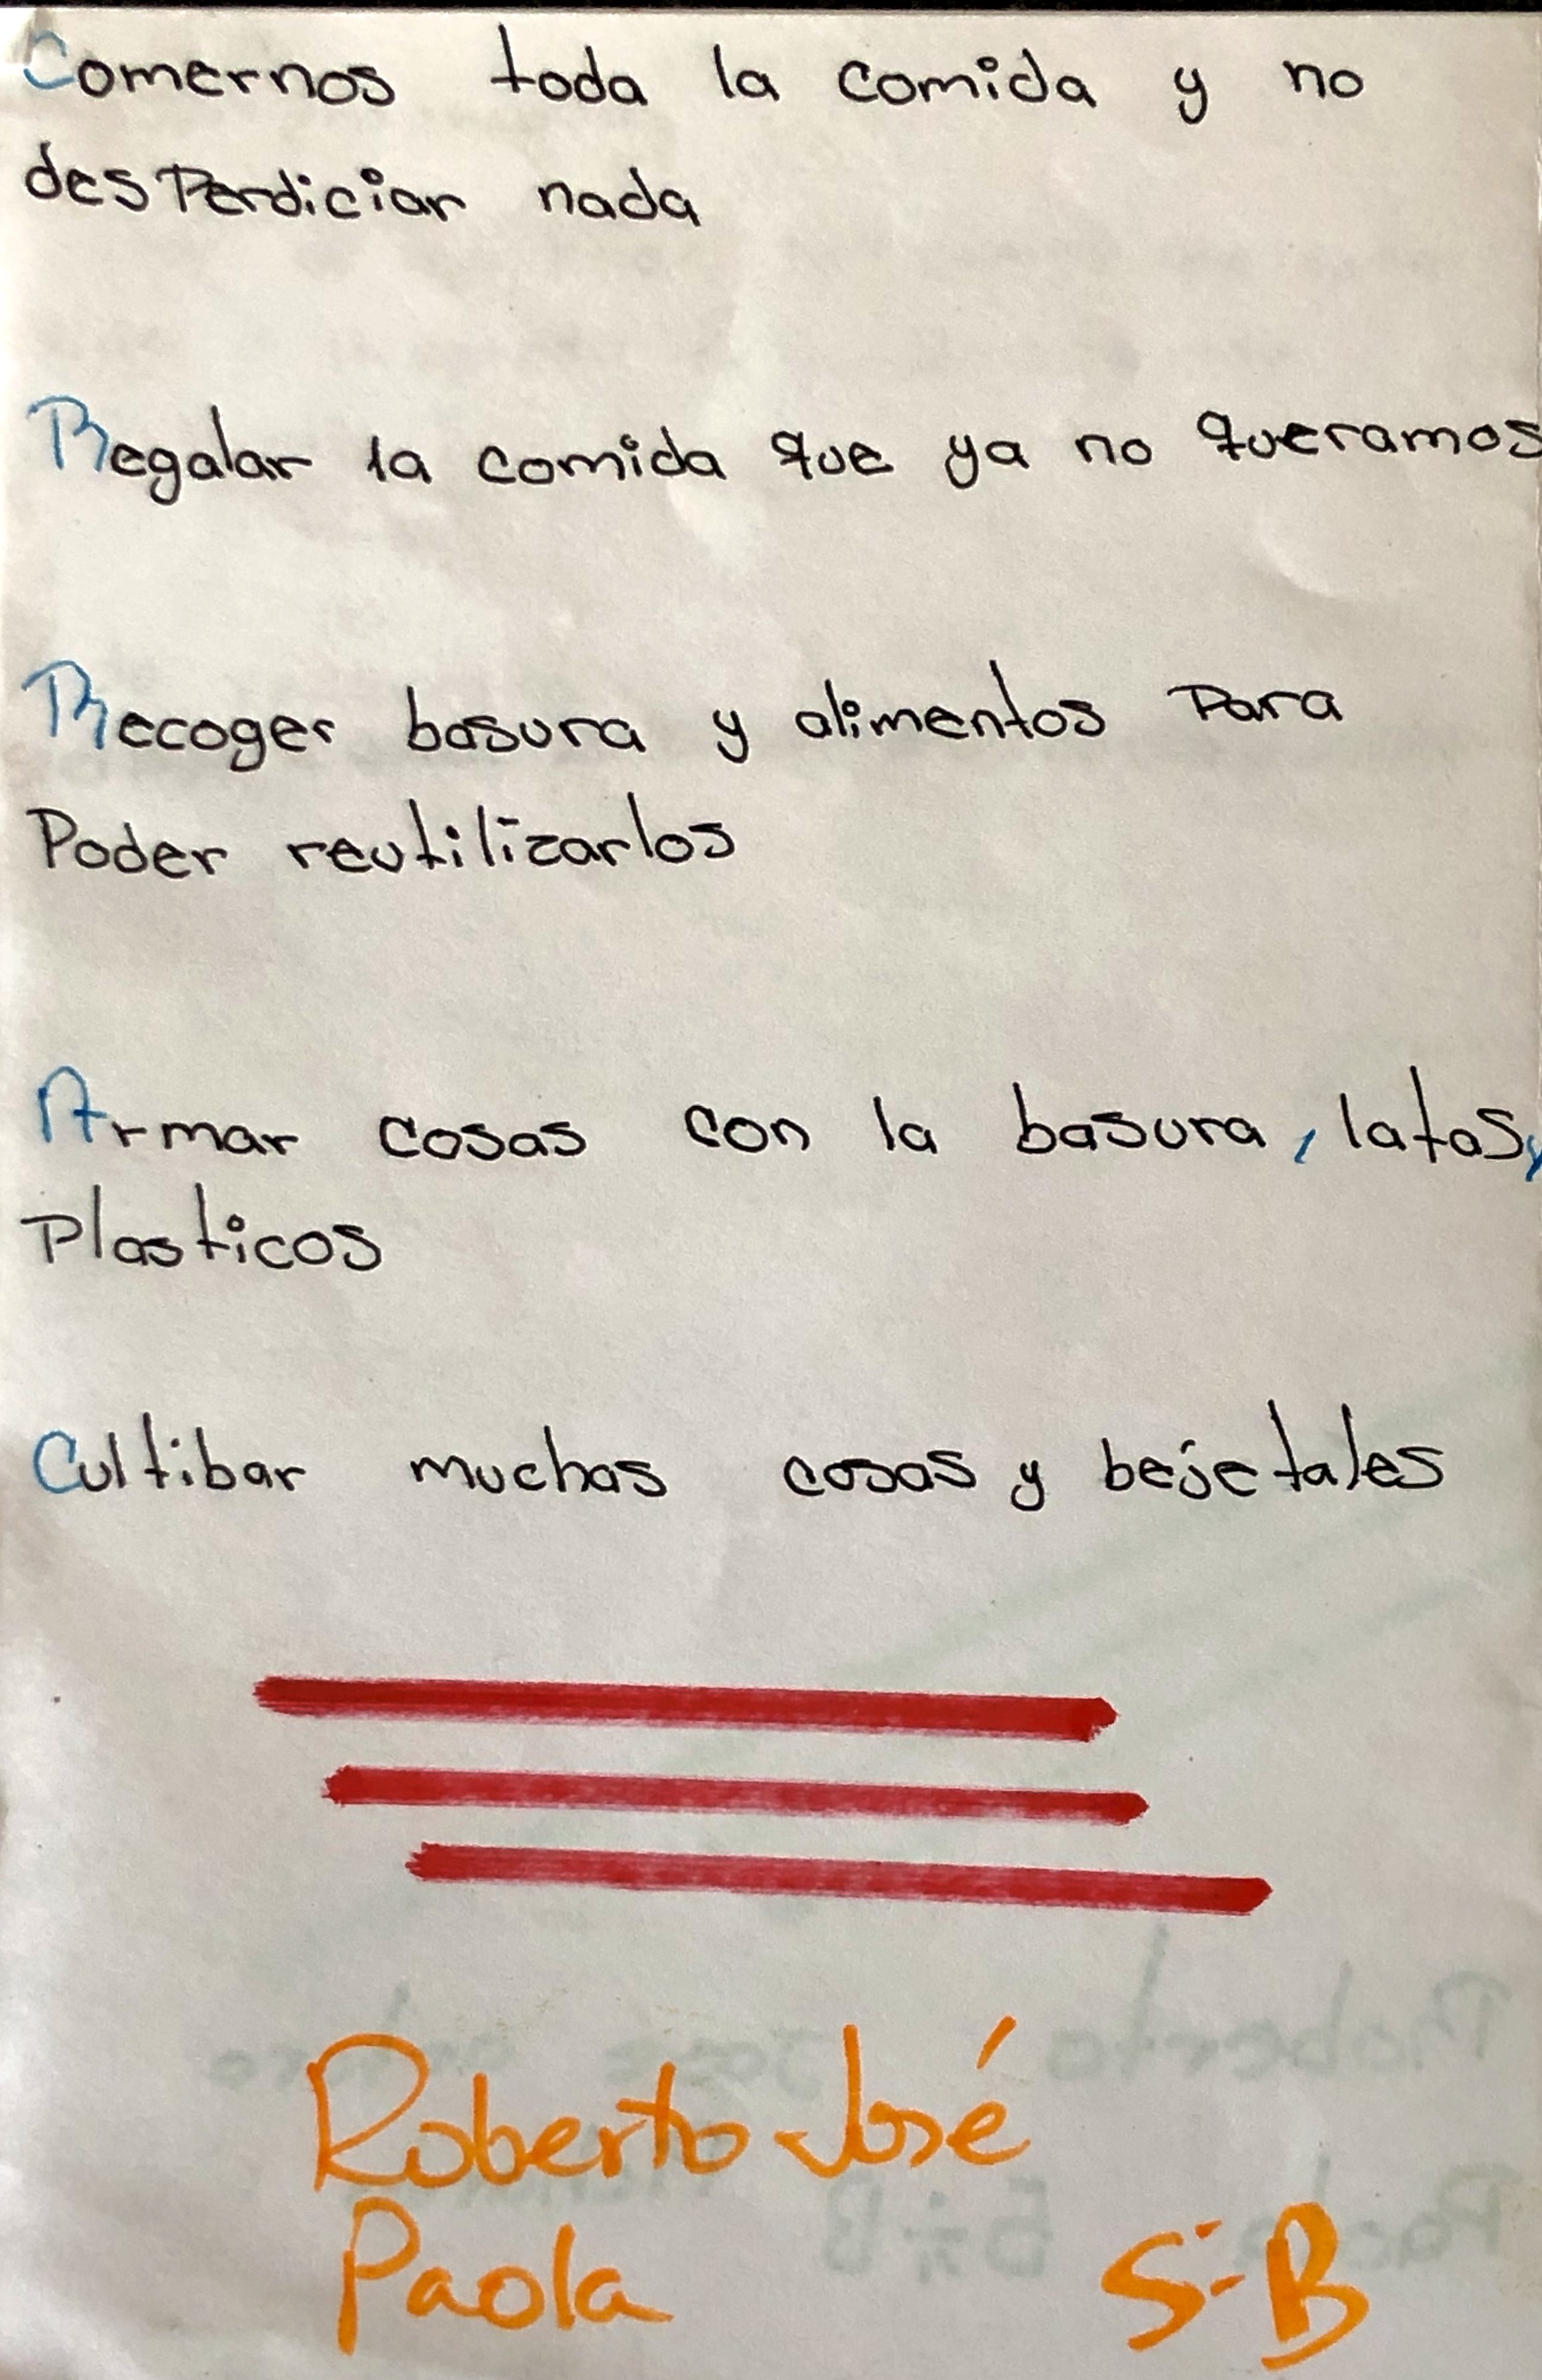 Comernos toda la comida y no
desperdiciar nada
Regalar la comida que ya no queramos
Recoger basura y alimentos para
Poder reutilizarlos
Armar cosas con la basura, latas,
Plasticos
Cultibar muchas cosas y bejetales
Roberto José
Paola 5-B